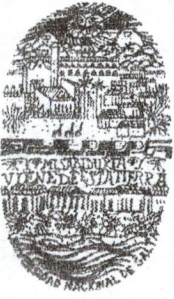 MI SABIDURIA
VIENE DE ESTA TIERRA
NACIONAL DE